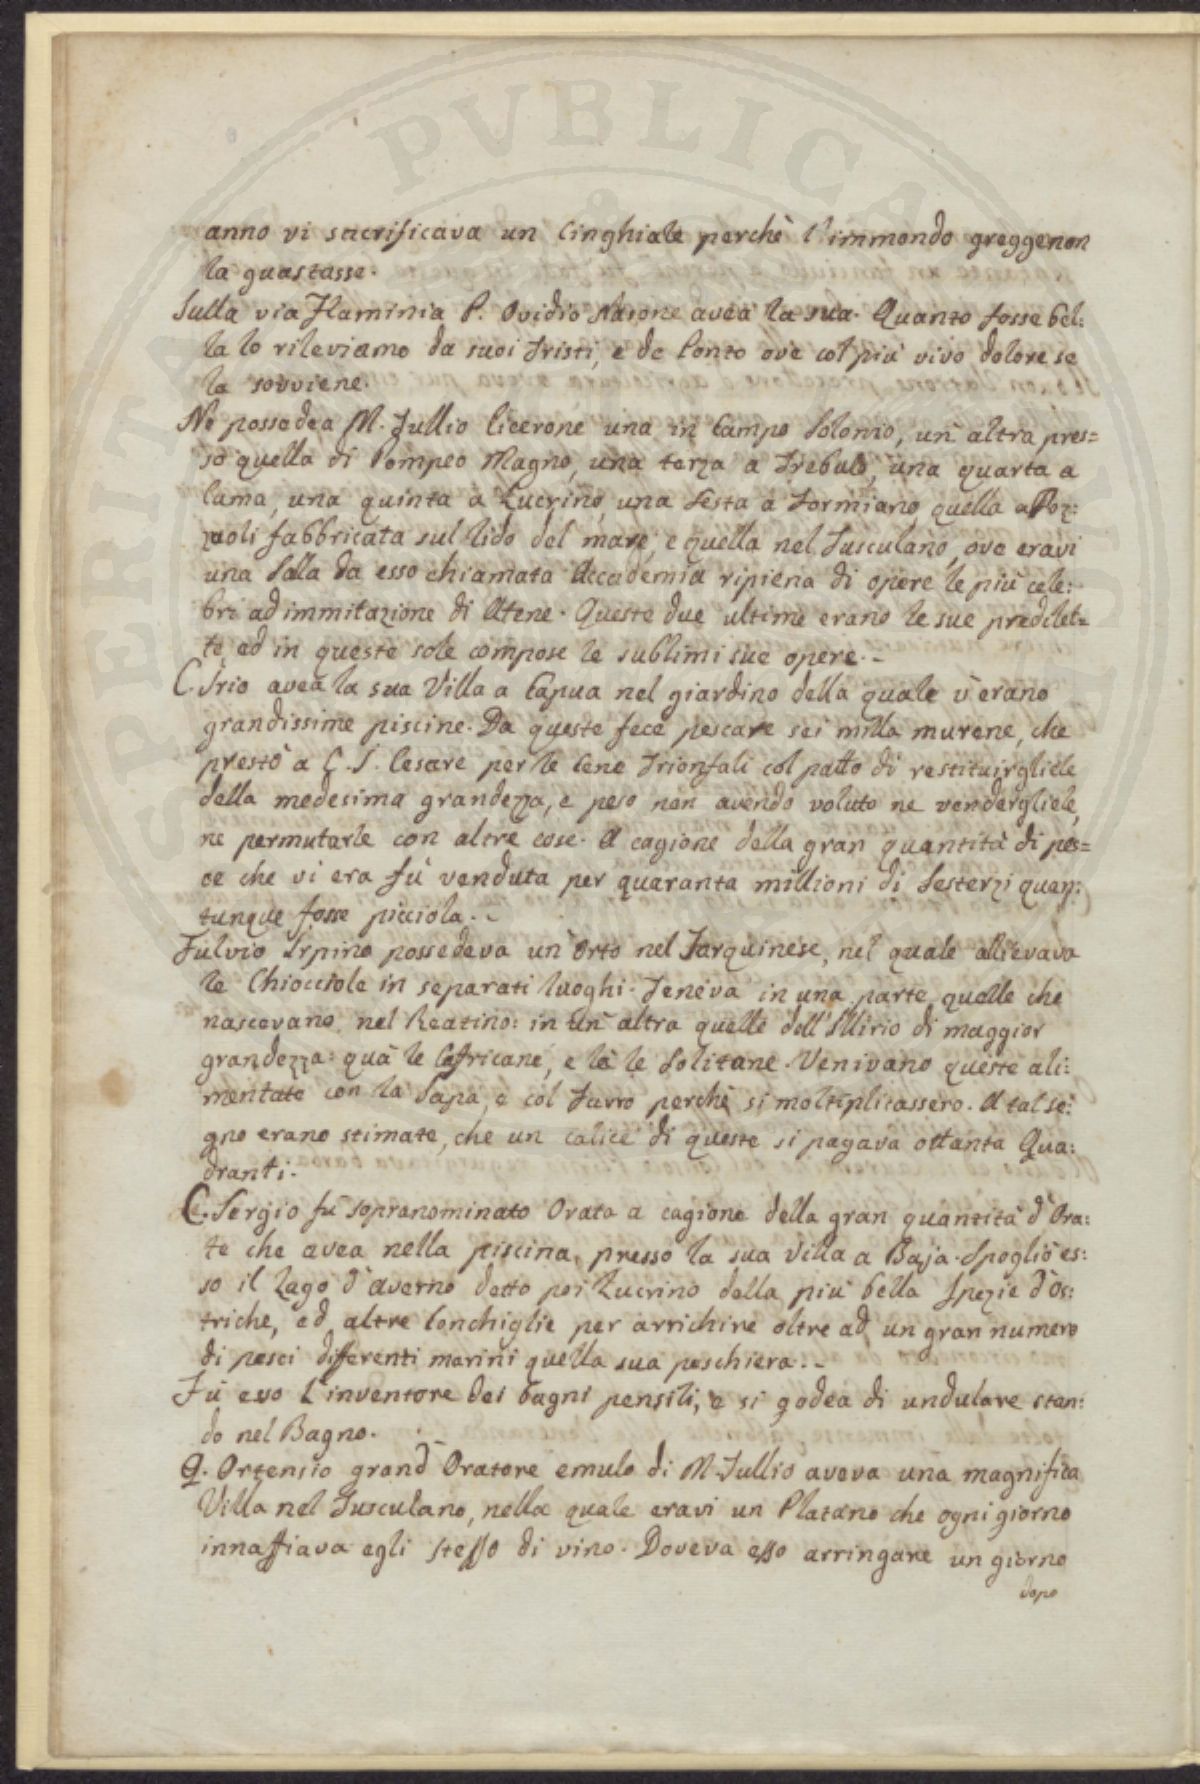 PVBLICA
anno vi sacrificava un Cinghiale perchè l'immondo gregge non
la guastasse.
Sulla via Flaminia P. Ovidio Nasone avea la sua. Quanto fosse bel:
la lo rileviamo da suoi Tristi, e de Ponto ove col più vivo dolore se
la sovviene.
Ne possedea M. Tullio Cicerone una in Campo Solonio, un altra pres=
so quella di Pompeo Magno, una terza a Trebulo, una quarta a
Cuma, una quinta a Lucrino, una sesta a Formiano, quella a Poz:
zuoli fabbricata sul lido del mare, e quella nel Tusculano, ove eravi
una Salla da esso chiamata Accademia ripiena di opere le più cele:
bri ad immitazione di Atene. Queste due ultime erano le sue predilet=
te, ed in queste sole compose le sublimi sue opere. -
C. Irio avea la sua Villa a Capua nel giardino della quale v'erano
grandissime piscine. Da queste fece pescare sei milla murene, che
prestò a C. I. Cesare per le Cene Trionfali col patto di restituirgliele
della medesima grandezza, e peso non avendo voluto ne vendergliele,
ne permutarle con altre cose. A cagione della gran quantità di pes=
ce che vi era fù venduta per quaranta millioni di Sesterzi quan:
tunque fosse picciola. -
Fulvio Irpino possedeva un Orto nel Tarquinese, nel quale allevava
le Chiocciole in separati luoghi. Teneva in una parte quelle che
nascevano nel Reatino: in un altra quelle dell'Illirio di maggior
grandezza: quà le Affricane, e là le Solitane. Venivano queste ali:
mentate con la Sapa, e col Farro perchè si moltiplicassero. A tal se:
gno erano stimate, che un calice di queste si pagava ottanta Qua:
dranti.
C. Sergio fù sopranominato Orata a cagione della gran quantità d'Ora:
te che avea nella piscina, presso la sua Villa a Baja. Spogliò es:
so il Lago d'Averno detto poi Lucrino della più bella Spezie d'Os:
triche, ed altre Conchiglie per arrichire oltre ad un gran numero
di pesci differenti marini quella sua peschiera. -
Fù esso l'inventore dei bagni pensili, e si godea di undulare stan:
do nel Bagno.
Q. Ortensio grand'Oratore emulo di M. Tullio aveva una magnifica
Villa nel Tusculano, nella quale eravi un Platano che ogni giorno
innaffiava egli stesso di vino. Doveva esso arringare un giorno
dopo